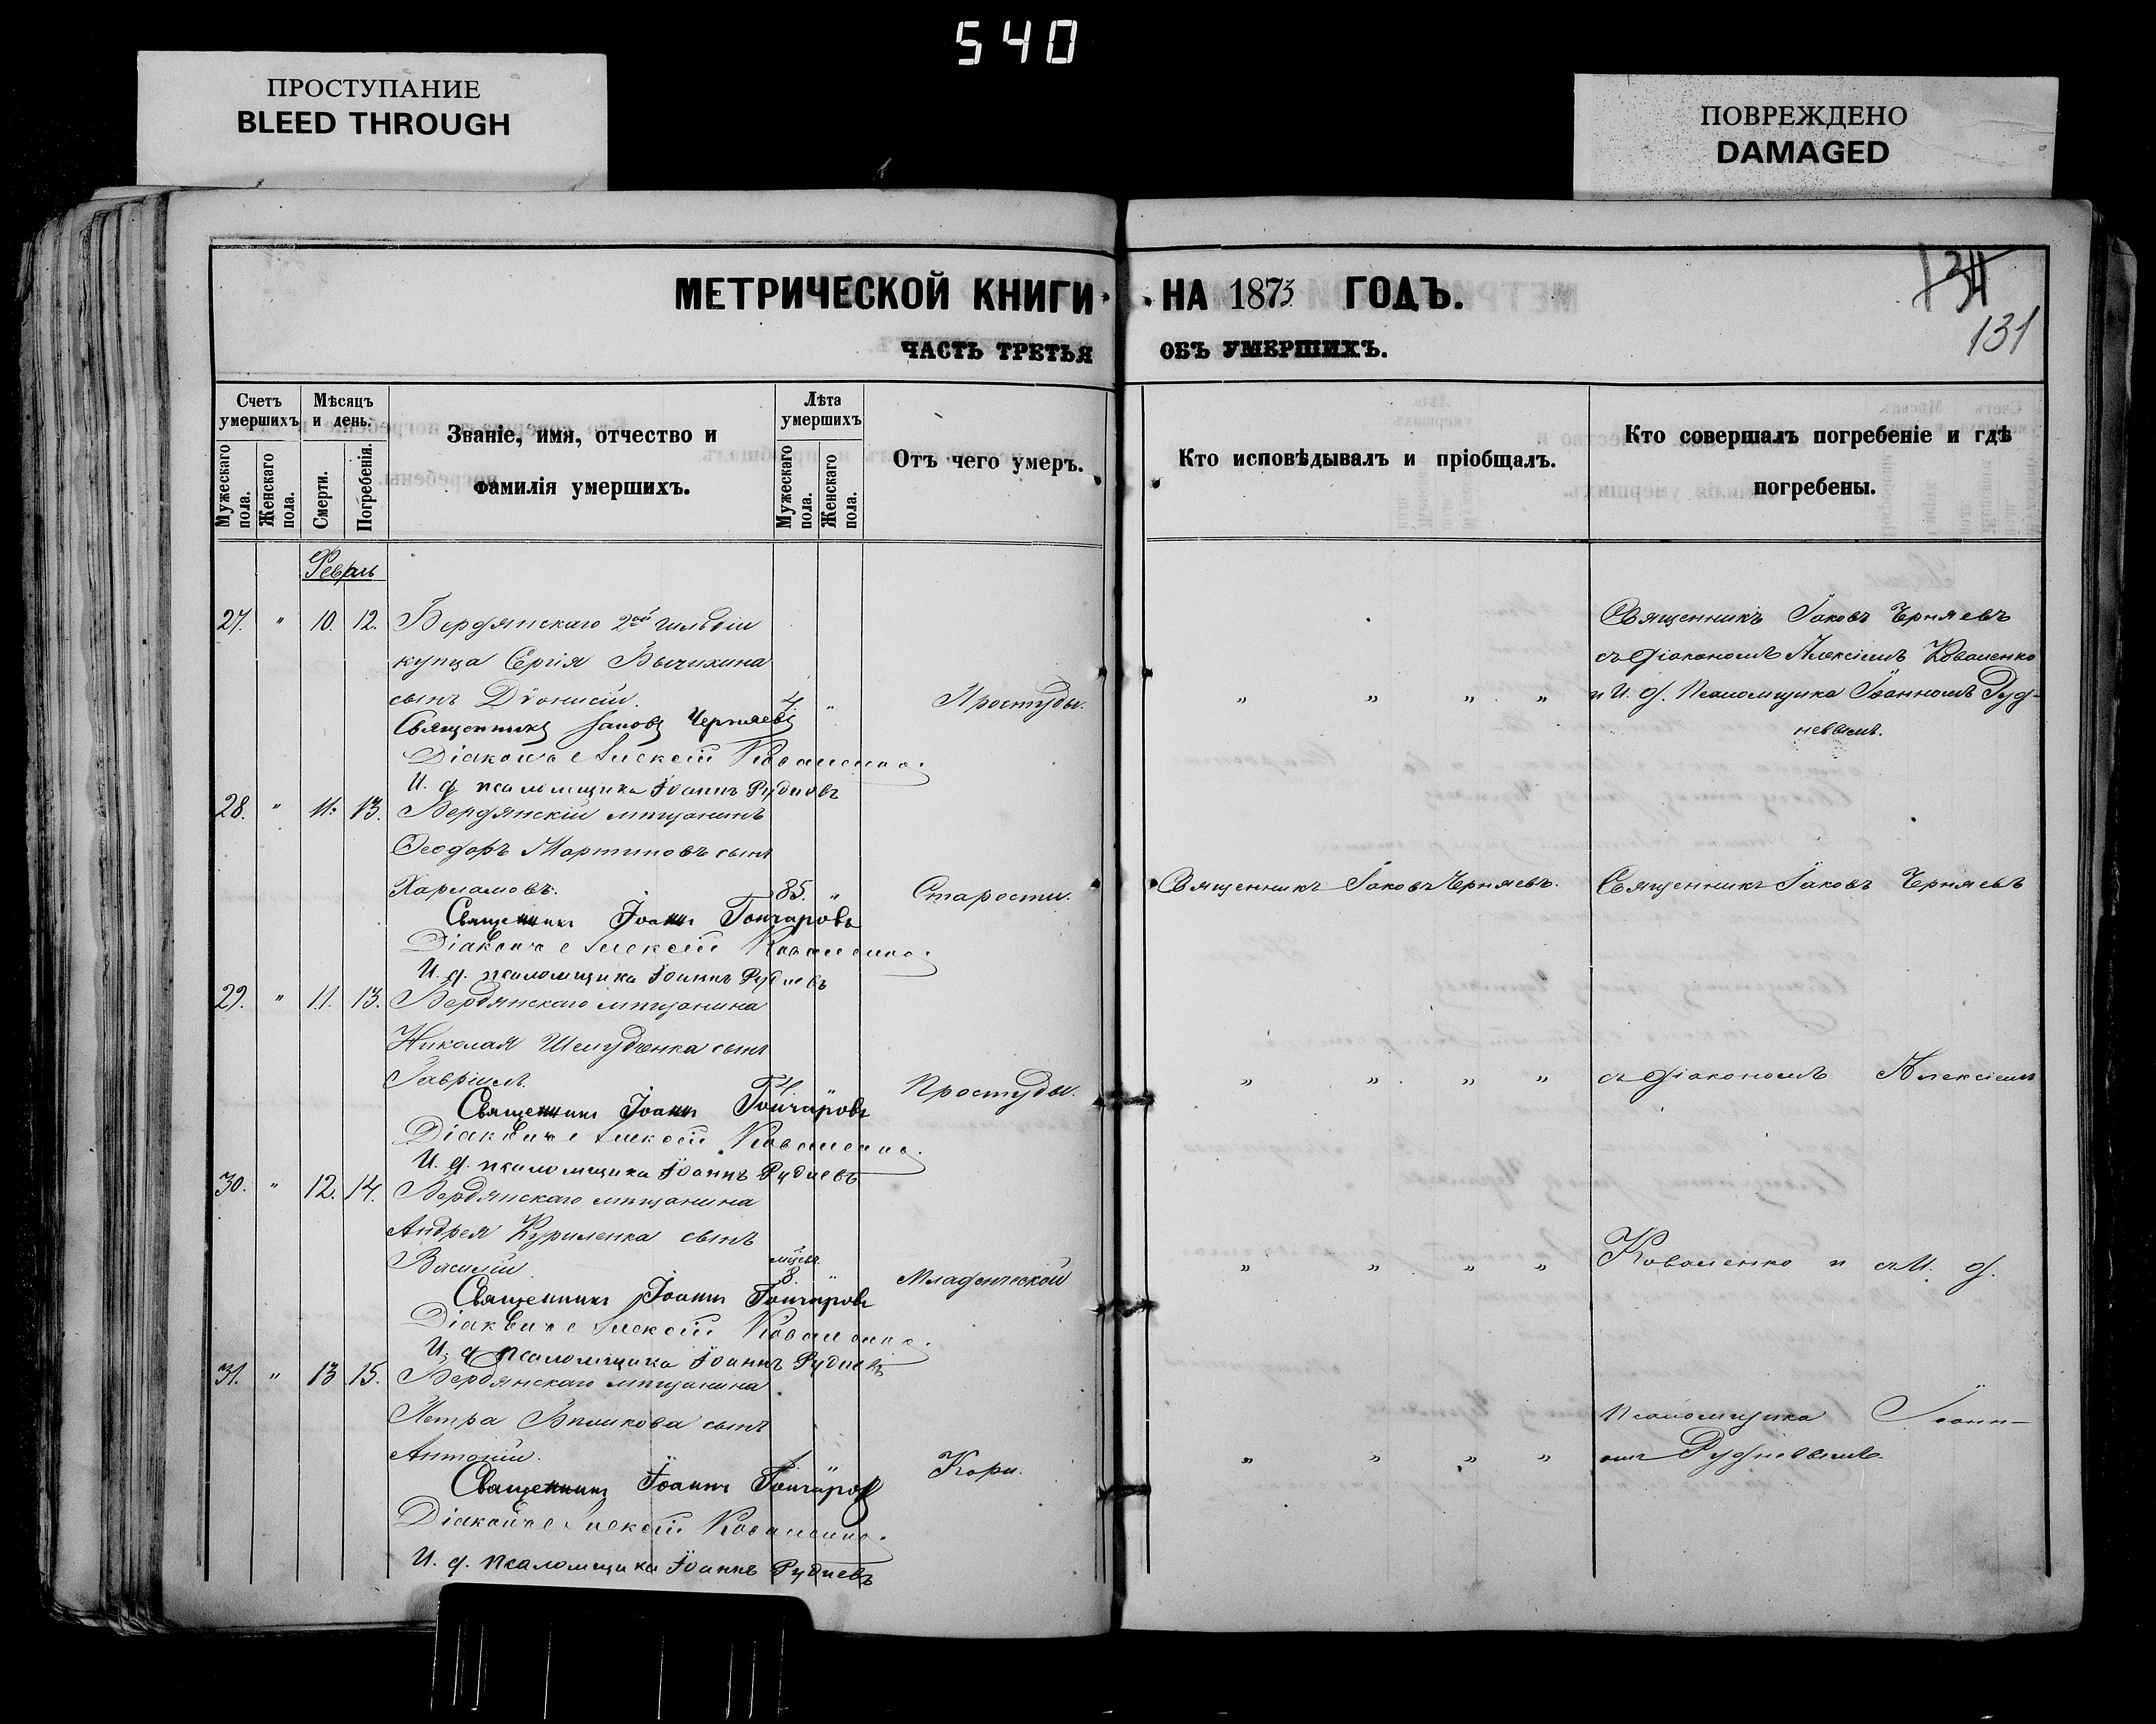 540
ПРОСТУПАНИЕ
BLEED THROUGH
ПОВРЕЖДЕНО
DAMAGED
МЕТРИЧЕСКОЙ КНИГИ НА 1873 ГОДЪ.
131
ЧАСТЬ ТРЕТЬЯ ОБЪ УМЕРШИХЪ.
Счетъ умершихъ
Мужескаго пола.
Женскаго пола.
Мѣсяцъ и день.
Смерти.
Погребенія.
Званіе, имя, отчество и
фамилія умершихъ.
Лѣта умершихъ
Мужескаго пола.
Женскаго пола.
Отъ чего умеръ.
Кто исповѣдывалъ и пріобщалъ.
Кто совершалъ погребеніе и гдѣ
погребены.
27. " 10. 12. Бердянскаго 2ой гильдіи
купца Сергія Бычихина
сынъ Діонисій. " Простуды. " " " "
Священникъ Іаковъ Черняевъ
Діаконъ Алексій Коваленко.
И. д. псаломщика Іоаннъ Рудневъ
Священникъ Іаковъ Черняевъ
съ діакономъ Алексіемъ Коваленко
и И. д. псаломщика Іоанномъ Руд-
невымъ.
28. " 11. 13. Бердянскій мѣщанинъ
Ѳеодоръ Мартиновъ сынъ
Харламовъ. 85. " Старости. Священникъ Іаковъ Черняевъ. Священникъ Іаковъ Черняевъ
Священникъ Іоаннъ Гончаровъ
Діаконъ Алексій Коваленко.
И. д. псаломщика Іоаннъ Рудневъ
29. " 11. 13. Бердянскаго мѣщанина
Николая сынъ
Гавріилъ. " Простуды. " " " " съ діакономъ Алексіемъ
Священникъ Іоаннъ Гончаровъ
Діаконъ Алексій Коваленко.
И. д. псаломщика Іоаннъ Рудневъ
30. " 12. 14. Бердянскаго мѣщанина
Андрея Куриленка сынъ
Василій. 8. " Младенческой " " " " Коваленко и съ И. д.
Священникъ Іоаннъ Гончаровъ
Діаконъ Алексій Коваленко.
И. д. псаломщика Іоаннъ Рудневъ
31. " 13 15. Бердянскаго мѣщанина
Петра сынъ
Антоній. Кори. " " " "
псаломщика Іоанн-
омъ Рудневымъ.
Священникъ Іоаннъ Гончаровъ
Діаконъ Алексій Коваленко.
И. д. псаломщика Іоаннъ Рудневъ